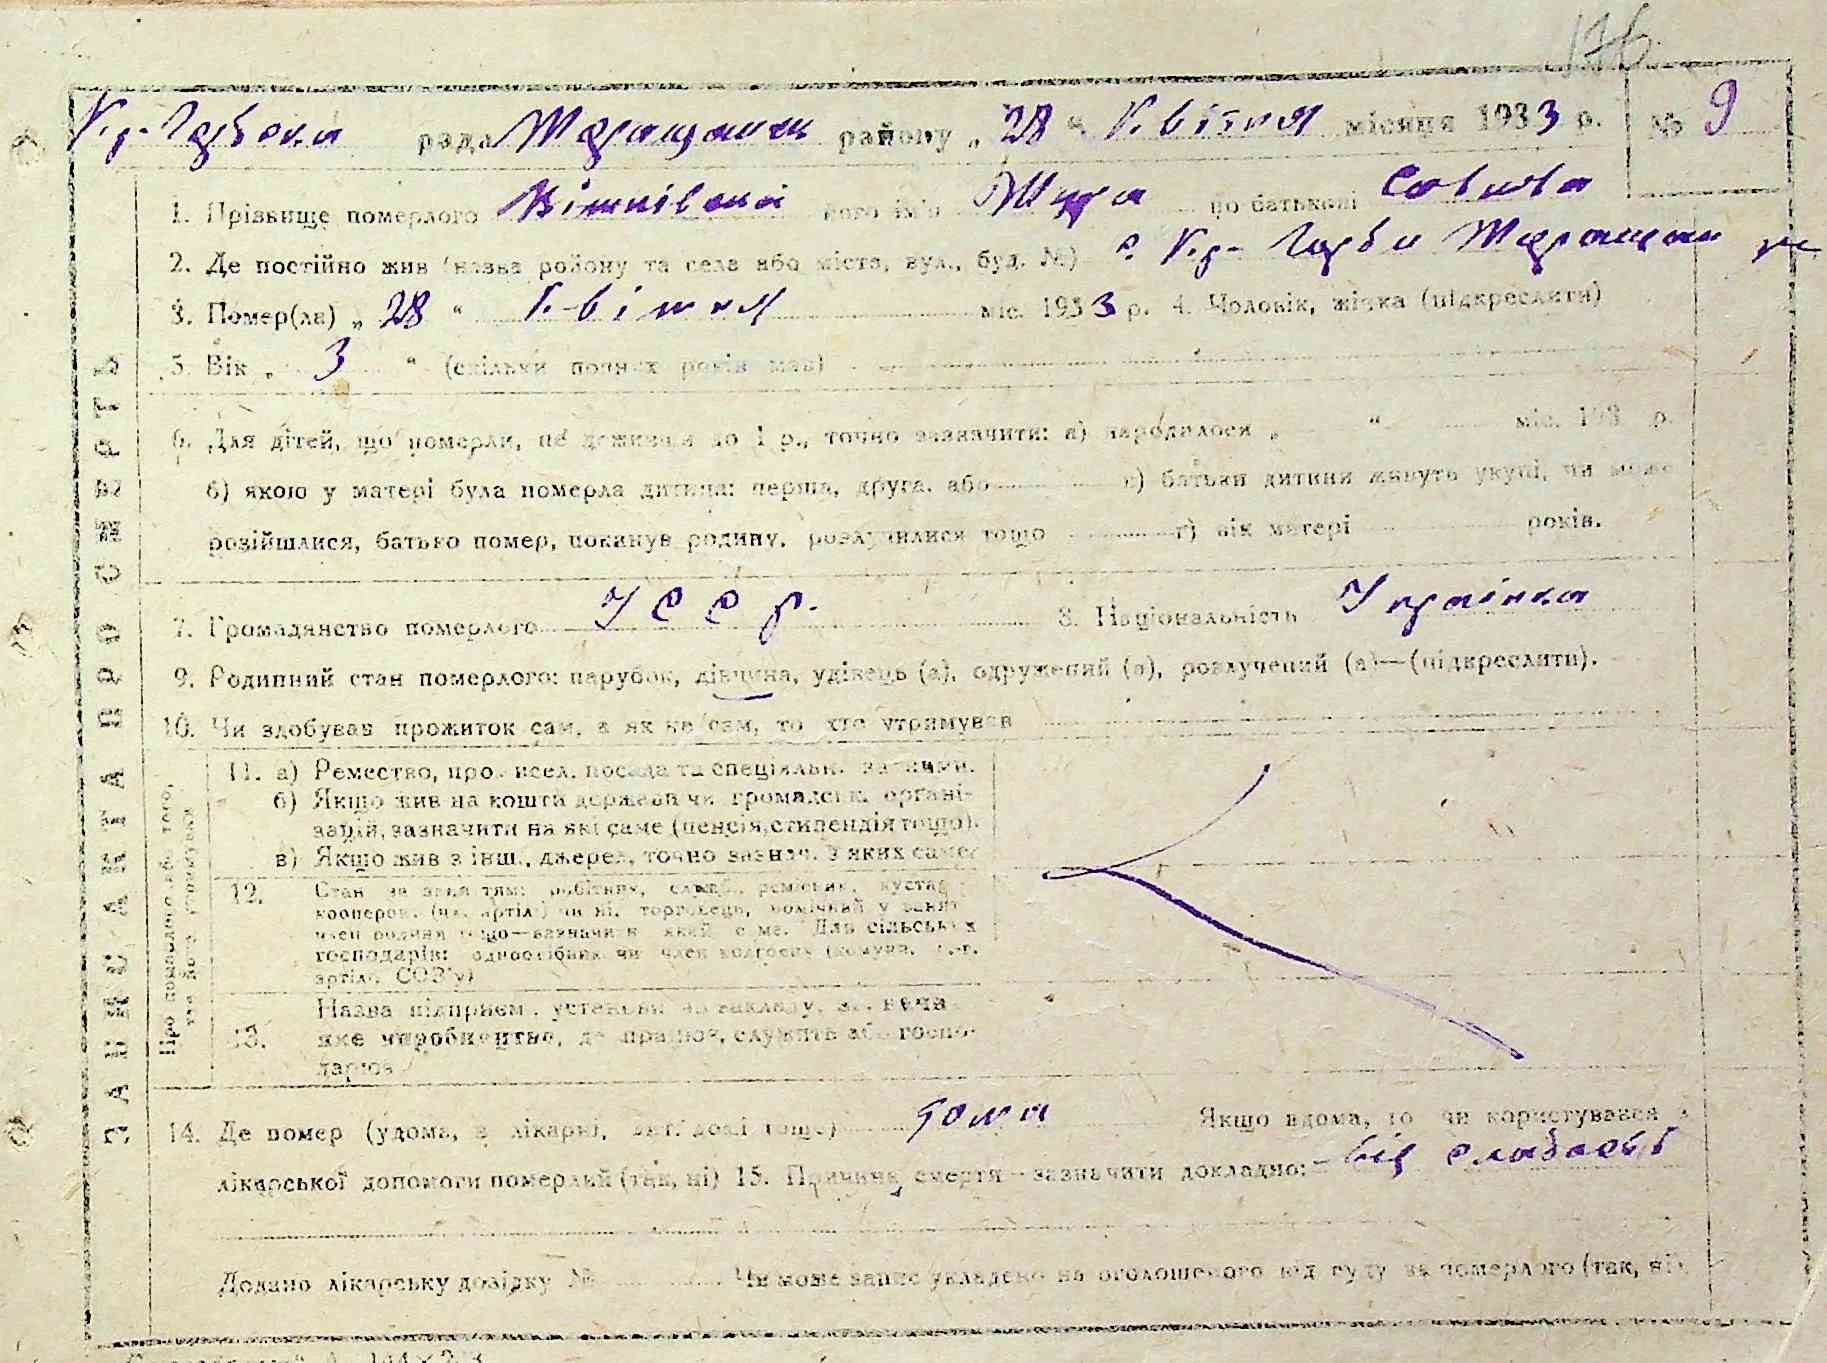 176
Кр-Гребека рада Таращанськ району „28“ Квітня місяця 1933 р. № 9
1. Прізвище померлого його ім'я по батькові Савива
2. Де постійно жив (назва району та села або міста, вул., буд. №) с Кр- Гребки Таращан
3. Помер(ла) „28“ Квітня міс. 1933 р. 4. Чоловік, жінка (підкреслити)
5. Вік „3“ (скільки повних років мав)
6. Для дітей, що померли, не доживши до 1 р., точно зазначити: а) народилося „ “ міс. 193 р.
б) якою у матері була померла дитина: перша, друга, або в) батьки дитини живуть укупі, чи може
розійшлися, батько помер, покинув родину, розлучилися тощо г) вік матері років.
7. Громадянство померлого УССР. 8. Національність Українка
9. Родинний стан померлого: парубок, дівчина, удівець (а), одружений (а), розлучений (а)—(підкреслити).
10. Чи здобував прожиток сам, а як не сам, то хто утримував
11. а) Ремество, посада та спеціяльн.
б) Якщо жив на кошти держави чи громадськ. органі-
зацій, зазначити на які саме (пенсія, стипендія тощо).
в) Якщо жив з інш., джерел, точно зазнач. з яких саме
12. Стан за заняттям: робітник, службов. ремісник, кустар
кооперов. (чл. артілі) чи ні, торговець, помічний у занят.
член родини тощо—зазначити який саме. Для сільських
господарів: одноосібник чи член колгоспу (комуни,
артілі, СОЗ'у)
13. Назва підприєм., установи чи закладу,
яке виробництво, де працює, служить або госпо-
дарює
14. Де помер (удома, в лікарні, тощо) дома Якщо вдома, то чи користувався з
лікарської допомоги померлый (так, ні) 15. Причина смерти—зазначити докладно: від слабості
Додано лікарську довідку № Чи може запис укладено на оголошеного від суду за померлого (так, ні)
ЗАПИС АКТА ПРО СМЕРТЬ
Про померлого або того,
хто його утримував